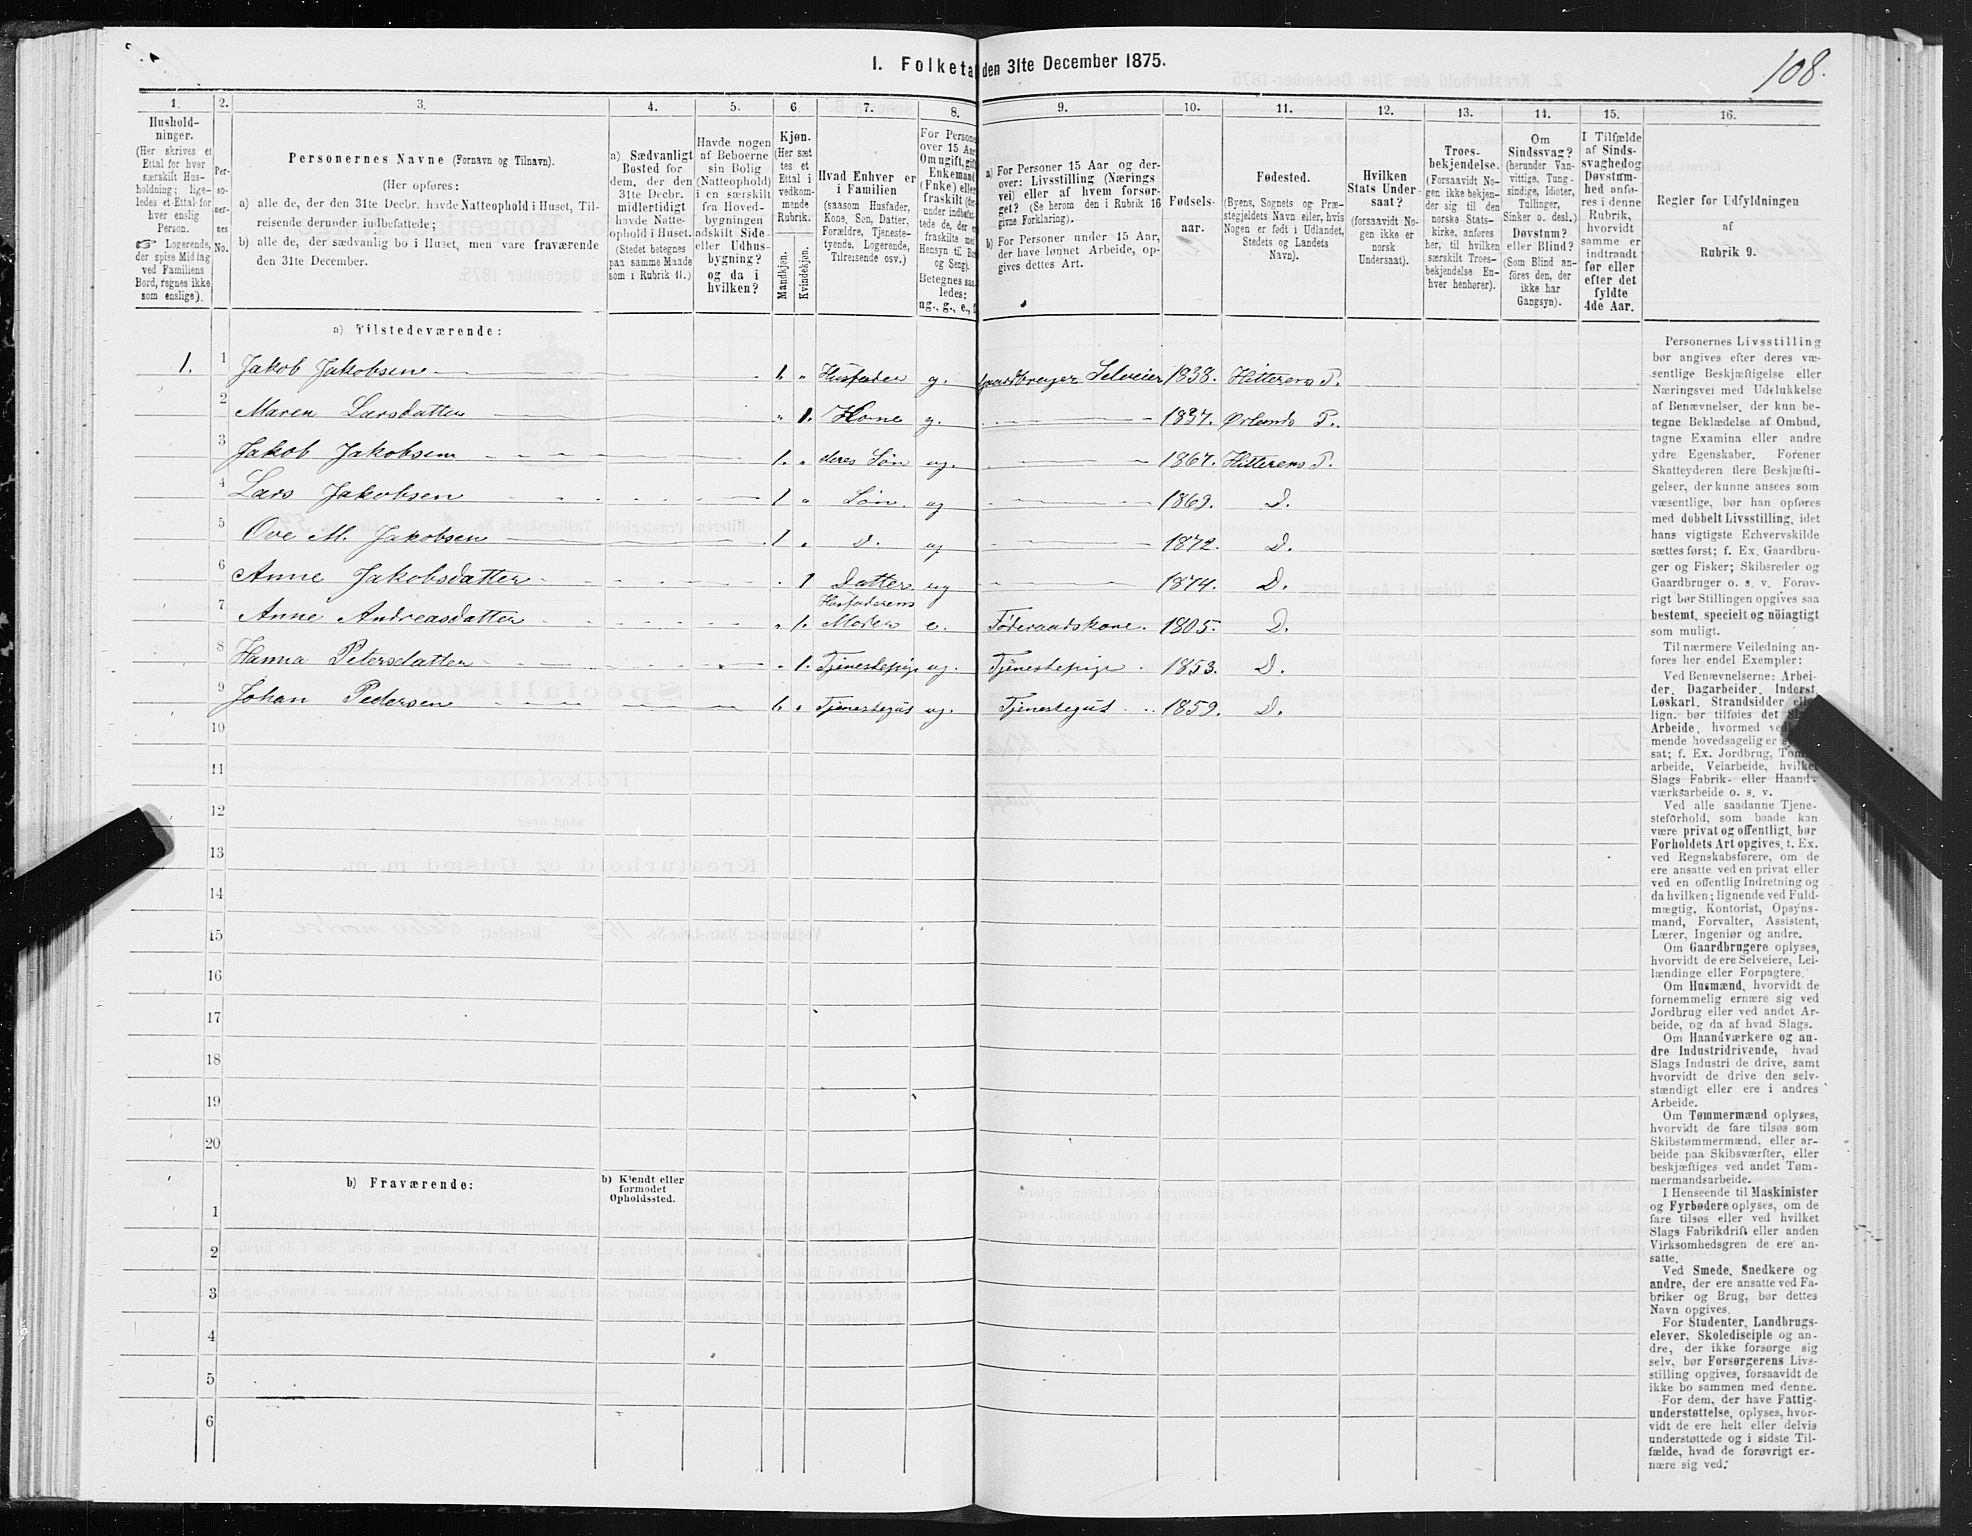 108.
I. Folketæ den 31te December 1875.
1. 2. 3. 4. 5. 6. 7. 8. 9. 10. 11. 12. 13. 14. 15. 16.
Hushold-
ninger.
(Her skrives et
Ettal for hver
særskilt Hus-
holdning; lige-
ledes et Ettal for
hver enslig
Person.
☞ Logerende,
der spise Middag
ved Familiens
Bord, regnes ikke
som enslige).
Per-
so-
ner-
nes
No.
Personernes Navne (Fornavn og Tilnavn).
(Her opføres:
a) alle de, der den 31te Decbr. havde Natteophold i Huset, Til-
reisende derunder indbefattede;
b) alle de, der sædvanlig bo i Huset, men vare fraværende
den 31te December.
a) Sædvanligt
Bosted for
dem, der den
31te Decbr.
midlertidigt
havde Natte-
ophold i Huset.
(Stedet betegnes
paa samme Maade
som i Rubrik 11.)
Havde nogen
af Beboerne
sin Bolig
(Natteophold)
i en særskilt
fra Hoved-
bygningen
adskilt Side-
eller Udhus-
bygning?
og da i
hvilken?
Kjøn.
(Her sæt-
tes et
Ettal i
vedkom-
mende
Rubrik.
Mandkjøn.
Kvindekjøn.
Hvad Enhver er
i Familien
(saasom Husfader,
Kone, Søn, Datter,
Forældre, Tjeneste-
tyende, Logerende,
Tilreisende osv.)
For Persone
over 15 Aar
Om ugift, gift
Enkemand
(Enke) elle
fraskilt (der-
under indbefat-
tede de, der er
fraskilte med
Hensyn til Bo
og Seng).
Betegnes saa-
ledes:
ug., g., e.,
a) For Personer 15 Aar og der-
over: Livsstilling (Nærings
vei) eller af hvem forsør-
get? (Se herom den i Rubrik 16
givne Forklaring).
b) For Personer under 15 Aar,
der have lønnet Arbeide, op-
gives dettes Art.
Fødsels-
aar.
Fødested.
(Byens, Sognets og Præ-
stegjeldets Navn eller, hvis
Nogen er født i Udlandet,
Stedets og Landets
Navn).
Hvilken
Stats Under-
saat?
(forsaavidt No-
gen ikke er
norsk
Undersaat).
Troes-
bekjendelse.
(Forsaavidt No-
gen ikke bekjen-
der sig til den
norske Stats-
kirke, anføres
her, til hvilken
særskilt Troes-
bekjendelse En-
hver henhører).
Om
Sindssvag?
(herunder Van-
vittige, Tung-
sindige, Idioter,
Tullinger,
Sinker o. desl.)
Døvstum?
eller Blind?
(Som Blind an-
føres den, der
ikke har
Gangsyn).
I Tilfælde
af Sinds-
svaghed og
Døvstum-
hed anfø-
res i denne
Rubrik,
hvorvidt
samme er
indtraadt
før eller
efter det
fyldte
4de Aar.
Regler for Udfyldningen
af
Rubrik 9.
a) Tilstedeværende:
1. 1 Jakob Jakobsen 1. „ Husfader g. Gaardbruger Selveier 1838. Hitterens P.
2 Maren Larsdatter „ 1. Kone g. 1837. Ørlands P.
3 Jakob Jakobsen 1. „ deres Søn ug. 1867. Hitterens P.
4 Lars Jakobsen 1 „ Søn. ug 1869. D.
5 Ove M. Jakobsen 1 „ D. ug 1872. D.
6 Anne Jakobsdatter „ 1 Datter ug 1874. D.
Husfaderens
7 Anne Andreasdatter „ 1. Moder e. Føderaadskone. 1805. D.
8 Hanna Petersdatter „ 1. Tjenestepige ug. Tjenestepige 1853. D.
9 Johan Pedersen 1. „ Tjenestegut ug. Tjenestegut 1859. D.
10
11
12
13
14
15
16
17
18
19
20
b) Fraværende:
b) Kjendt eller
formodet
Opholdssted.
1
2
3
4
5
6
Personernes Livsstilling
bør angives efter deres væ-
sentlige Beskjæftigelse eller
Næringsvei med Udelukkelse
af Benævnelser, der kun be-
tegne Beklædelse af Ombud,
tagne Examina eller andre
ydre Egenskaber. Forener
Skatteyderen flere Beskjæfti-
gelser, der kunne ansees som
væsentlige, bør han opføres
med dobbelt Livsstilling, idet
hans vigtigste Erhvervskilde
sættes først; f. Ex. Gaardbru-
ger og Fisker; Skibsreder og
Gaardbruger o. s. v. Forøv-
rigt bør Stillingen opgives saa
bestemt, specielt og nöiagtigt
som muligt.
Til nærmere Veiledning an-
føres her endel Exempler:
Ved Benævnelserne: Arbei-
der, Dagarbeider, Inderst,
Løskarl, Strandsidder ell
lign. bør tilføies det Sl
Arbeide, hvormed ved
mende hovedsagelig er s
sat; f. Ex. Jordbrug, Tøm
arbeide, Veiarbeide, hvilket
Slags Fabrik- eller Haand-
værksarbeide o. s. v.
Ved alle saadanne Tjene-
steforhold, som baade kan
være privat og offentligt, bør
Forholdets Art opgives, f. Ex.
ved Regnskabsførere, om de
ere ansatte ved en privat eller
ved en offentlig Indretning og
da hvilken; lignende ved Fuld-
mægtig, Kontorist, Opsyns-
mand, Forvalter, Assistent,
Lærer, Ingeniør og andre.
Om Gaardbrugere oplyses,
hvorvidt de ere Selveiere, Lei-
lændinge eller Forpagtere.
Om Husmænd, hvorvidt de
fornemmelig ernære sig ved
Jordbrug eller ved andet Ar-
beide, og da af hvad Slags.
Om Haandværkere og an-
dre Industridrivende, hvad
Slags Industri de drive, samt
hvorvidt de drive den selv-
stændigt eller ere i andres
Arbeide.
Om Tømmermænd oplyses,
hvorvidt de fare tilsøs som
Skibstømmermænd, eller ar-
beide paa Skibsværfter, eller
beskjæftiges ved andet Tøm-
mermandsarbeide.
I Henseende til Maskinister
og Fyrbødere oplyses, om de
fare tilsøs eller ved hvilket
Slags Fabrikdrift eller anden
Virksomhedsgren de ere an-
satte.
Ved Smede, Snedkere og
andre, der ere ansatte ved Fa-
briker og Brug, bør dettes
Navn opgives.
For Studenter, Landbrugs-
elever, Skoledisciple og an-
dre, der ikke forsørge sig
selv, bør Forsørgerens Livs-
stilling opgives, forsaavidt de
ikke bo sammen med denne.
For dem, der have Fattig-
understøttelse, oplyses, hvor-
vidt de ere helt eller delvis
understøttede og i sidste Til-
fælde, hvad de forøvrigt er-
nære sig ved.